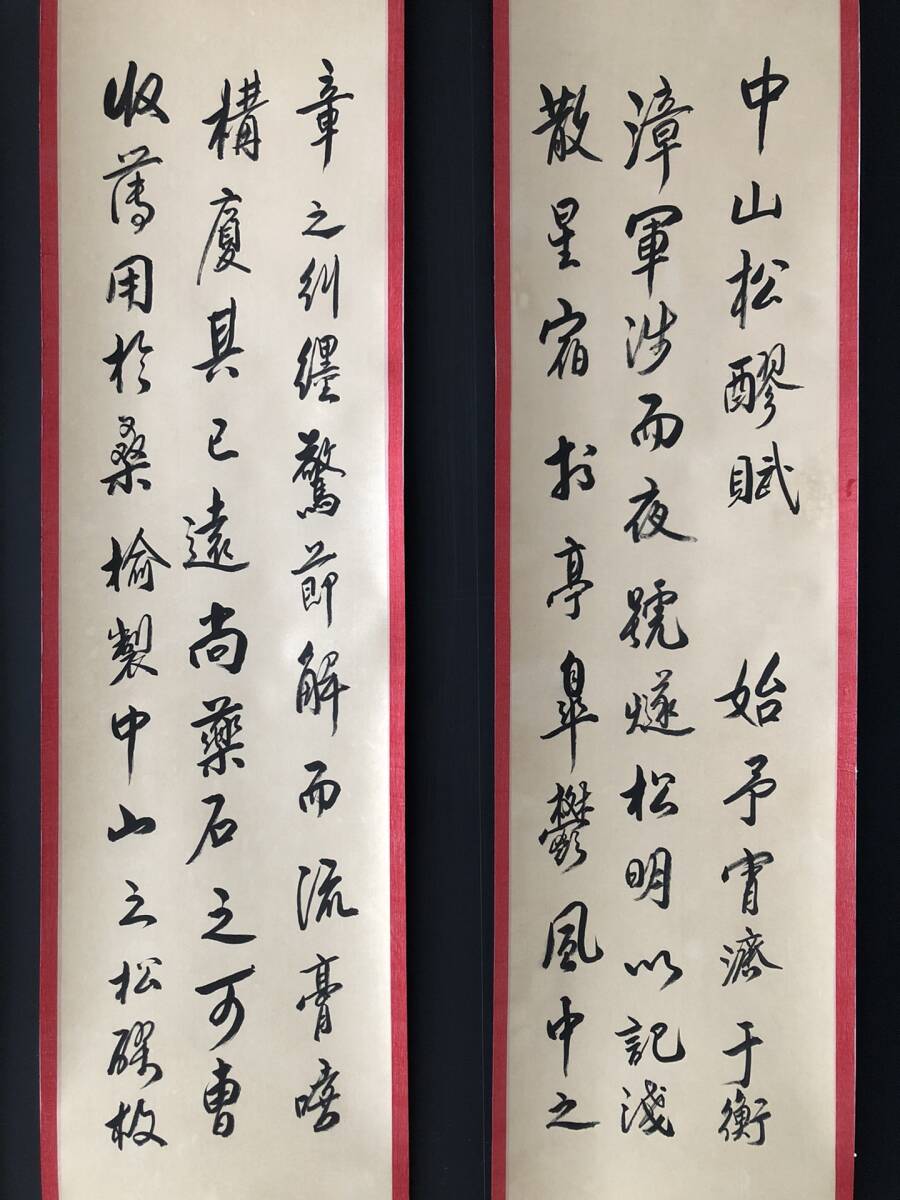 中山松醪賦 始予宵濟于衡
漳軍涉而夜號燧松明以記淺
散星宿於亭皋鬱風中之
章之糾纏驚節解而流膏嘻
構廈其已遠尚藥石之可曹
收薄用於桑榆製中山之松醪救